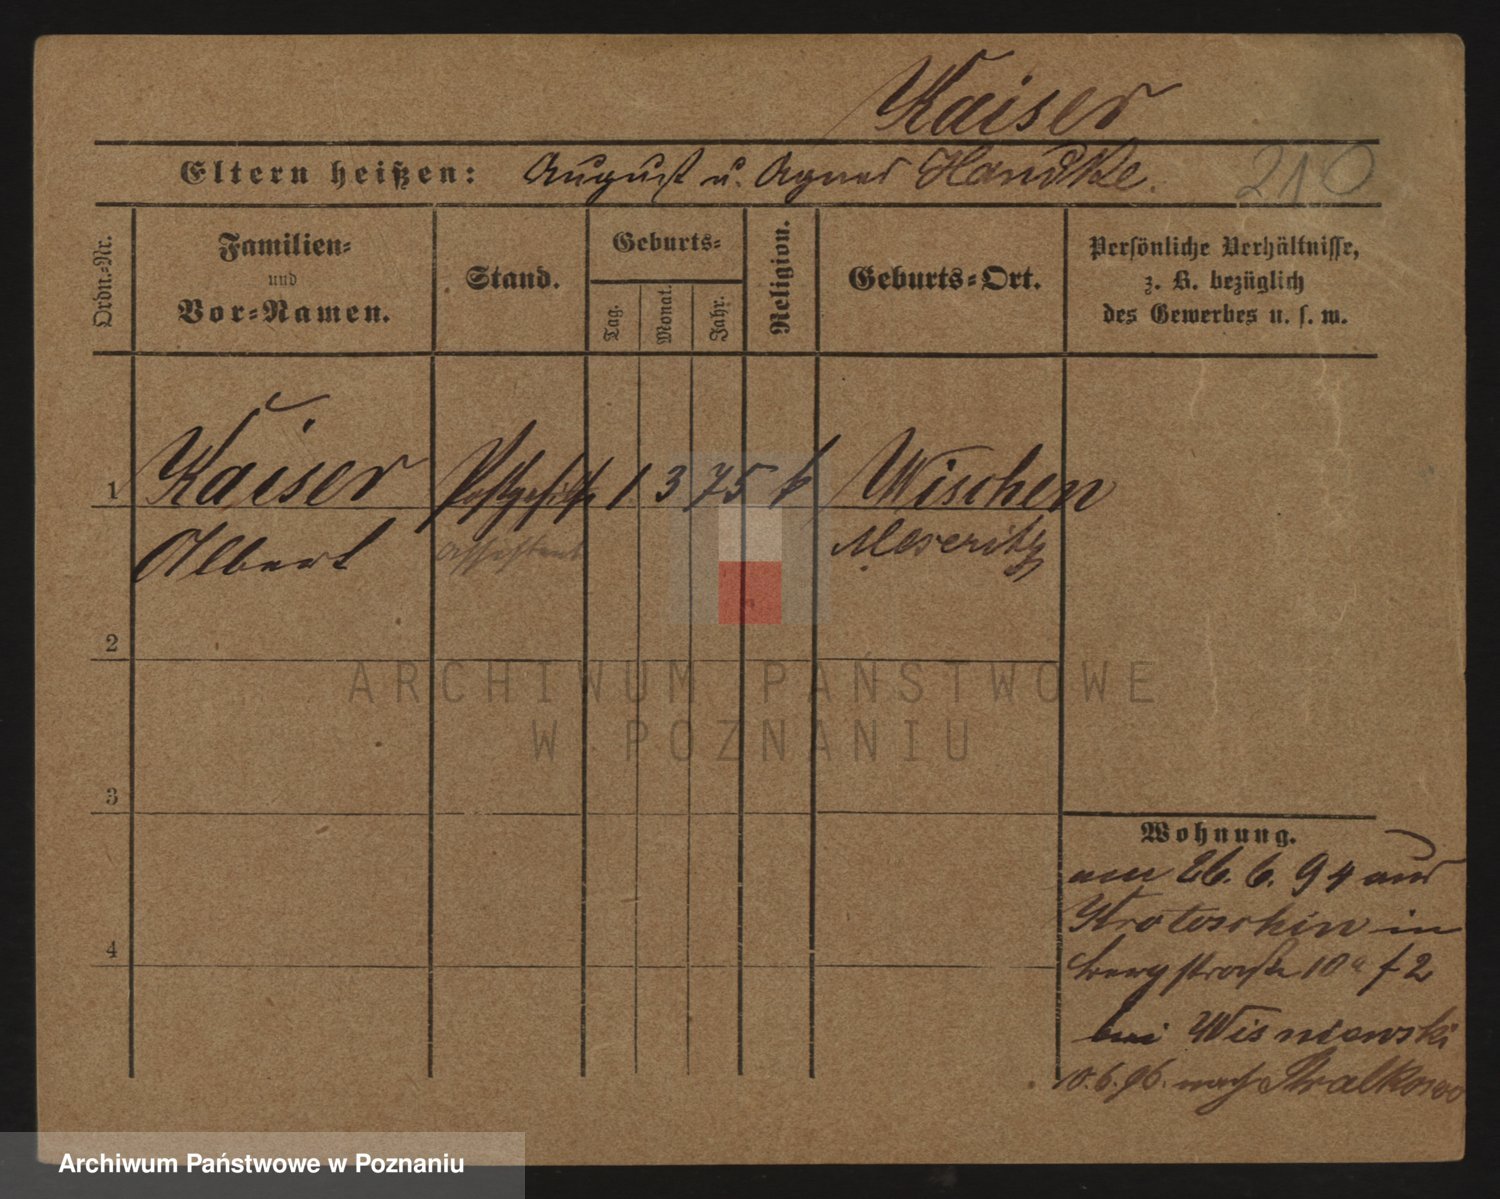 Kaiser
Eltern heißen: August u. Agnes Handke.
210
Ordn.-Nr.
Familien-
und
Vor-Namen.
Stand.
Geburts-
Tag.
Monat.
Jahr.
Religion.
Geburts-Ort.
Persönliche Verhältnisse,
z. B. bezüglich
des Gewerbes u. s. w.
1 Kaiser Postgehilfe 1 3 75 k Wischen
Albert Assistent Meseritz
2
3
4
Wohnung.
am 26. 6. 94 aus
Krotoschin in
bergstraße 10a f 2
bei Wisniewski
10. 6. 96. nach Stralkowo
ARCHIWUM PAŃSTWOWE
W POZNANIU
Archiwum Państwowe w Poznaniu